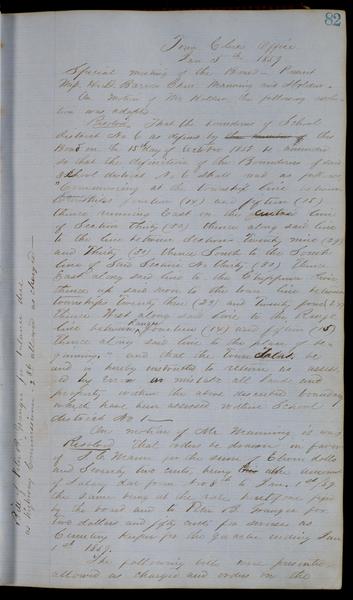 82
Town Clerk Office
Jan 5th 1859
Special meeting of the Board - Present
Barron Chair Manning and Holden
On Motion of Mr Holden, the following resolu-
tion was adopted
Resolved That the boundaries of School
district No 6 as defined by this
Board on the 15 day of October 1858 be amended
so that the definition of the Boundaries of said
School district No 6 shall read as follows
"Commencing at the township line between
townships fourteen (14) and fifteen (15)
thence running East on the line
of Section thirty (30) thence along said line
to the line between Sections twenty nine (29)
and thirty (30) thence South to the South
line of said Section No thirty (30) thence
East along said line to the Chippewa River
thence up said river to the town line between
townships twenty three (23) and twenty four (24)
thence West along said line to the Range
line between Ranges fourteen (14) and fifteen (15)
thence along said line to the place of be-
ginning" and that the Town be
and is hereby instructed to return as assess
ed by error or mistake all lands and
property within the above described boundary
which have been assessed within School
district No
On motion of Mr Manning it was
Resolved That orders be drawn in favor
of in the sum of Eleven dollars
and Seventy two cents, being the amount
of Salary due from Nov 8th to Jan 1st 1859
the same being at the rate
by the board and to Peter B. Granger for
two dollars and fifty cents for services as
Cemetery keeper for the quarter ending Jan
1st 1859.
The following bills were presented
allowed as charged and orders on the
Bill of Peter B. Granger for balance due
as Highway Commissioner allowed as charged